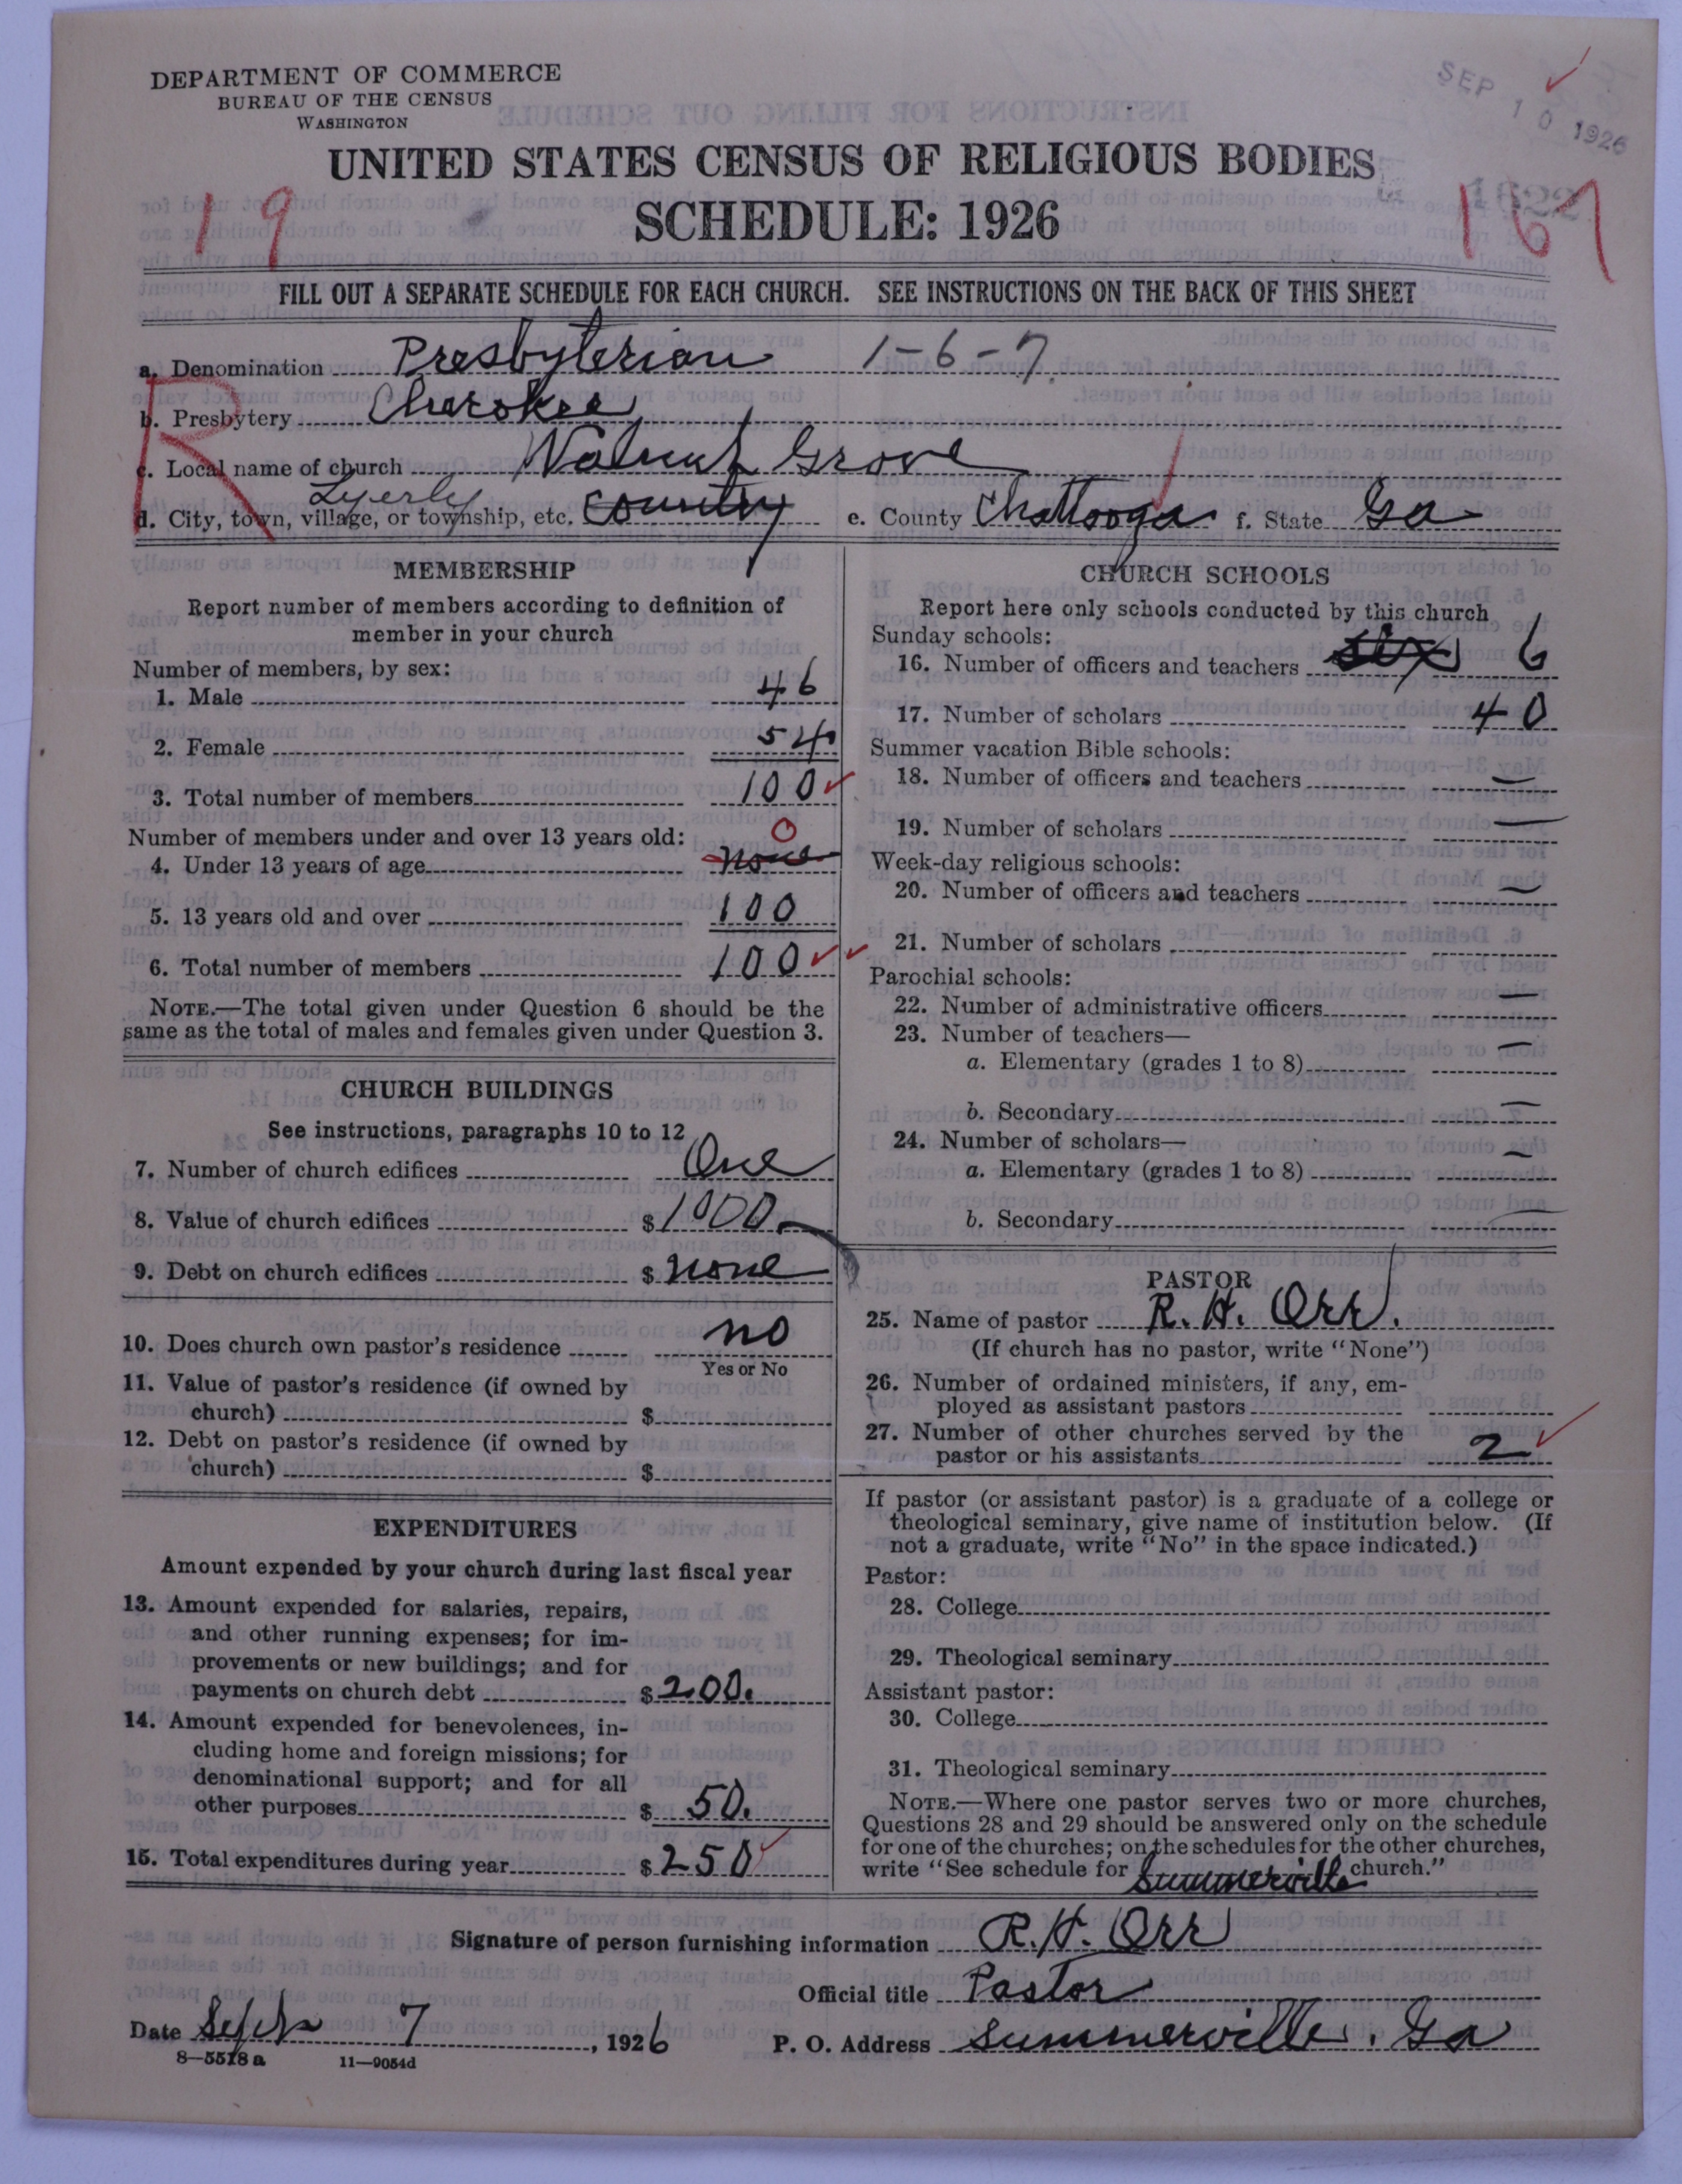 DEPARTMENT OF COMMERCE
BUREAU OF THE CENSUS
WASHINGTON
SEP 10 1926
UNITED STATES CENSUS OF RELIGIOUS BODIES
SCHEDULE: 1926
19
167
FILL OUT A SEPARATE SCHEDULE FOR EACH CHURCH. SEE INSTRUCTIONS ON THE BACK OF THIS SHEET
a. Denomination Presbyterian 1-6-7
b. Presbytery Cherokee
c. Local name of church Walnut Grove
R
d. City, town, village, or township, etc. Lyerly country e. County Chattooga f. State Ga
MEMBERSHIP
Report number of members according to definition of
member in your church
Number of members, by sex:
1. Male 46
2. Female 54
3. Total number of members 100
Number of members under and over 13 years old:
4. Under 13 years of age none 0
5. 13 years old and over 100
6. Total number of members 100
NOTE.—The total given under Question 6 should be the
same as the total of males and females given under Question 3.
CHURCH BUILDINGS
See instructions, paragraphs 10 to 12
7. Number of church edifices One
8. Value of church edifices $1000.
9. Debt on church edifices $ none
10. Does church own pastor's residence no
Yes or No
11. Value of pastor's residence (if owned by
church) $
12. Debt on pastor's residence (if owned by
church) $
EXPENDITURES
Amount expended by your church during last fiscal year
13. Amount expended for salaries, repairs,
and other running expenses; for im-
provements or new buildings; and for
payments on church debt $200.
14. Amount expended for benevolences, in-
cluding home and foreign missions; for
denominational support; and for all
other purposes $ 50.
15. Total expenditures during year $250
CHURCH SCHOOLS
Report here only schools conducted by this church
Sunday schools:
16. Number of officers and teachers six 6
17. Number of scholars 40
Summer vacation Bible schools:
18. Number of officers and teachers —
19. Number of scholars —
Week-day religious schools:
20. Number of officers and teachers —
21. Number of scholars —
Parochial schools:
22. Number of administrative officers —
23. Number of teachers—
a. Elementary (grades 1 to 8) —
b. Secondary —
24. Number of scholars—
a. Elementary (grades 1 to 8) —
b. Secondary —
PASTOR
25. Name of pastor R. H. Orr.
(If church has no pastor, write "None")
26. Number of ordained ministers, if any, em-
ployed as assistant pastors
27. Number of other churches served by the
pastor or his assistants 2
If pastor (or assistant pastor) is a graduate of a college or
theological seminary, give name of institution below. (If
not a graduate, write "No" in the space indicated.)
Pastor:
28. College
29. Theological seminary
Assistant pastor:
30. College
31. Theological seminary
NOTE.—Where one pastor serves two or more churches,
Questions 28 and 29 should be answered only on the schedule
for one of the churches; on the schedules for the other churches,
write "See schedule for Summerville church."
Signature of person furnishing information R. H. Orr
Official title Pastor
Date Sept 7, 1926 P. O. Address Summerville. Ga
8—5518a 11—9054d